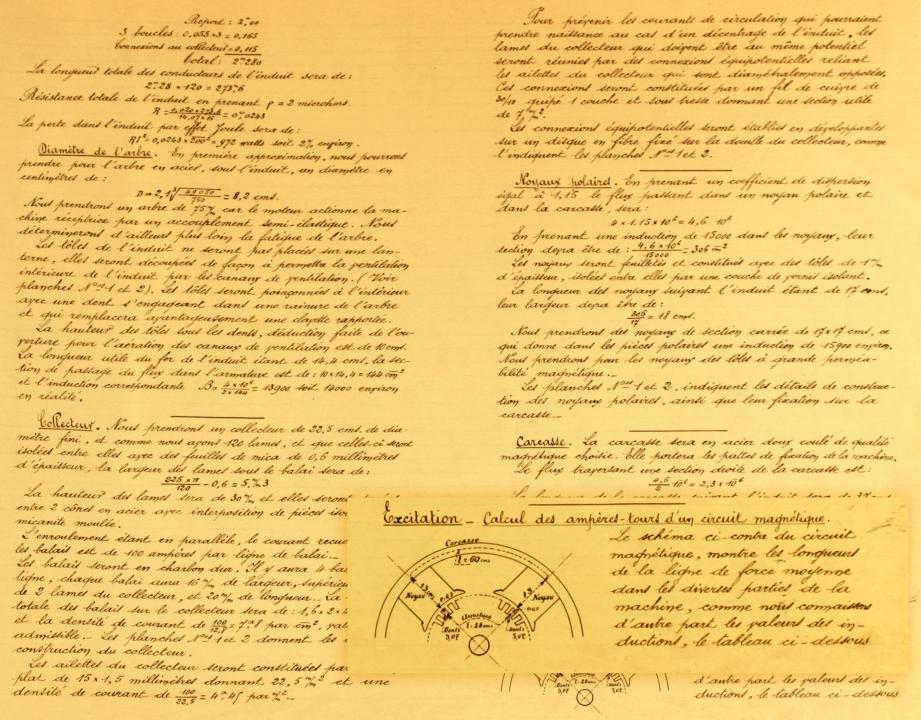 Report : 2,00
3 boucles : 0,055 × 3 = 0,165
Connexions au collecteur = 0,115
Total : 2,280
La longueur totale des conducteurs de l'induit sera de :
2,28 × 120 = 273,6
Résistance totale de l'induit en prenant ρ = 2 microhms.
La perte dans l'induit par effet Joule sera de :
RI² = 0,0243 × 200² = 972 watts soit 2% environ.
Diamètre de l'arbre. En première approximation, nous pourrons
prendre pour l'arbre en acier, sous l'induit, un diamètre en
centimètres de :
= 8,2 cms.
Nous prendrons un arbre de 75 car le moteur actionne la ma-
chine réceptrice par un accouplement semi-élastique. Nous
déterminerons d'ailleurs plus loin la fatigue de l'arbre.
Les tôles de l'induit ne seront pas placées sur une lan-
terne, elles seront découpées de façon à permettre la ventilation
intérieure de l'induit par les canaux de ventilation. (Voir
planches Nos 1 et 2). Les tôles seront poinçonnées à l'intérieur
avec une dent s'engageant dans une rainure de l'arbre
et qui remplacera avantageusement une clavette rapportée.
La hauteur des tôles sous les dents, déduction faite de l'ou-
verture pour l'aération des canaux de ventilation est de 10 cms.
La longueur utile du fer de l'induit étant de 14,4 cms, la sec-
tion de passage du flux dans l'armature est de : 10 × 14,4 = 144 cm²
et l'induction correspondante B = 4 × 10⁶ / 2 × 144 = 13900 soit 14000 environ
en réalité.
Collecteur. Nous prendrons un collecteur de 22,5 cms. de dia-
mètre fini, et comme nous avons 120 lames, et que celles-ci seront
isolées entre elles avec des feuilles de mica de 0,6 millimètres
d'épaisseur, la largeur des lames sous le balai sera de :
225 × π / 120 - 0,6 = 5,3
La hauteur des lames sera de 30 et elles seront
entre 2 cônes en acier avec interposition de pièces iso
micanite moulée.
L'enroulement étant en parallèle, le courant recue
les balais est de 100 ampères par ligne de balai.
Les balais seront en charbon dur. Il y aura 4 ba
ligne, chaque balai aura 16 de largeur, supérieu
de 2 lames du collecteur, et 20 de longueur. La
totale des balais sur le collecteur sera de : 1,6 × 2 × 4
et la densité de courant de 100 / 12,8 = 7,8 par cm²,
admissible. Les planches Nos 1 et 2 donnent les
construction du collecteur.
Les ailettes du collecteur seront constituées par
plat de 15 × 1,5 millimètres donnant 22,5 et une
densité de courant de 100 / 22,5 = 4,45 par
Pour prévenir les courants de circulation qui pourraient
prendre naissance au cas d'un décentrage de l'induit, les
lames du collecteur qui doivent être au même potentiel
seront réunies par des connexions équipotentielles reliant
les ailettes du collecteur qui sont diamétralement opposées.
Ces connexions seront constituées par un fil de cuivre de
30/10 guipé 1 couche et sous tresse donnant une section utile
de 7
Les connexions équipotentielles seront établies en développantes
sur un disque en fibre fixé sur la douille du collecteur, comme
l'indiquent les planches Nos 1 et 2.
Noyaux polaires. En prenant un coefficient de dispersion
égal à 1,15 le flux passant dans un noyau polaire et
dans la carcasse, sera :
4 × 1.15 × 10⁶ = 4,6 10⁶
En prenant une induction de 15000 dans les noyaux, leur
section devra être de : 4,6 × 10⁶ / 15000 = 306 cm²
Les noyaux seront feuilletés et constitués avec des tôles de 1
d'épaisseur, isolées entre elles par une couche de vernis isolant.
La longueur des noyaux suivant l'induit étant de 17 cms,
leur largeur devra être de :
306 / 17 = 18 cms.
Nous prendrons des noyaux de section carrée de 17 × 17 cms, ce
qui donne dans les pièces polaires une induction de 15900 environ.
Nous prendrons pour les noyaux des tôles à grande perméa-
bilité magnétique.
Les planches Nos 1 et 2, indiquent les détails de construc-
tion des noyaux polaires, ainsi que leur fixation sur la
carcasse.
Carcasse. La carcasse sera en acier doux coulé de qualité
magnétique choisie. Elle portera les pattes de fixation de la machine.
Le flux traversant une section droite de la carcasse est :
4,6 / 2 10⁶ = 2,3 × 10⁶
Excitation - Calcul des ampères-tours d'un circuit magnétique.
Carcasse
l = 60 cms
Noyau
Noyau
Dents
Dents
l = 28 cms
Le schéma ci-contre du circuit
magnétique, montre les longueurs
de la ligne de force moyenne
dans les diverses parties de la
machine, comme nous connaissons
d'autre part les valeurs des in-
ductions, le tableau ci-dessous
d'autre part les valeurs des in-
ductions, le tableau ci-dessous